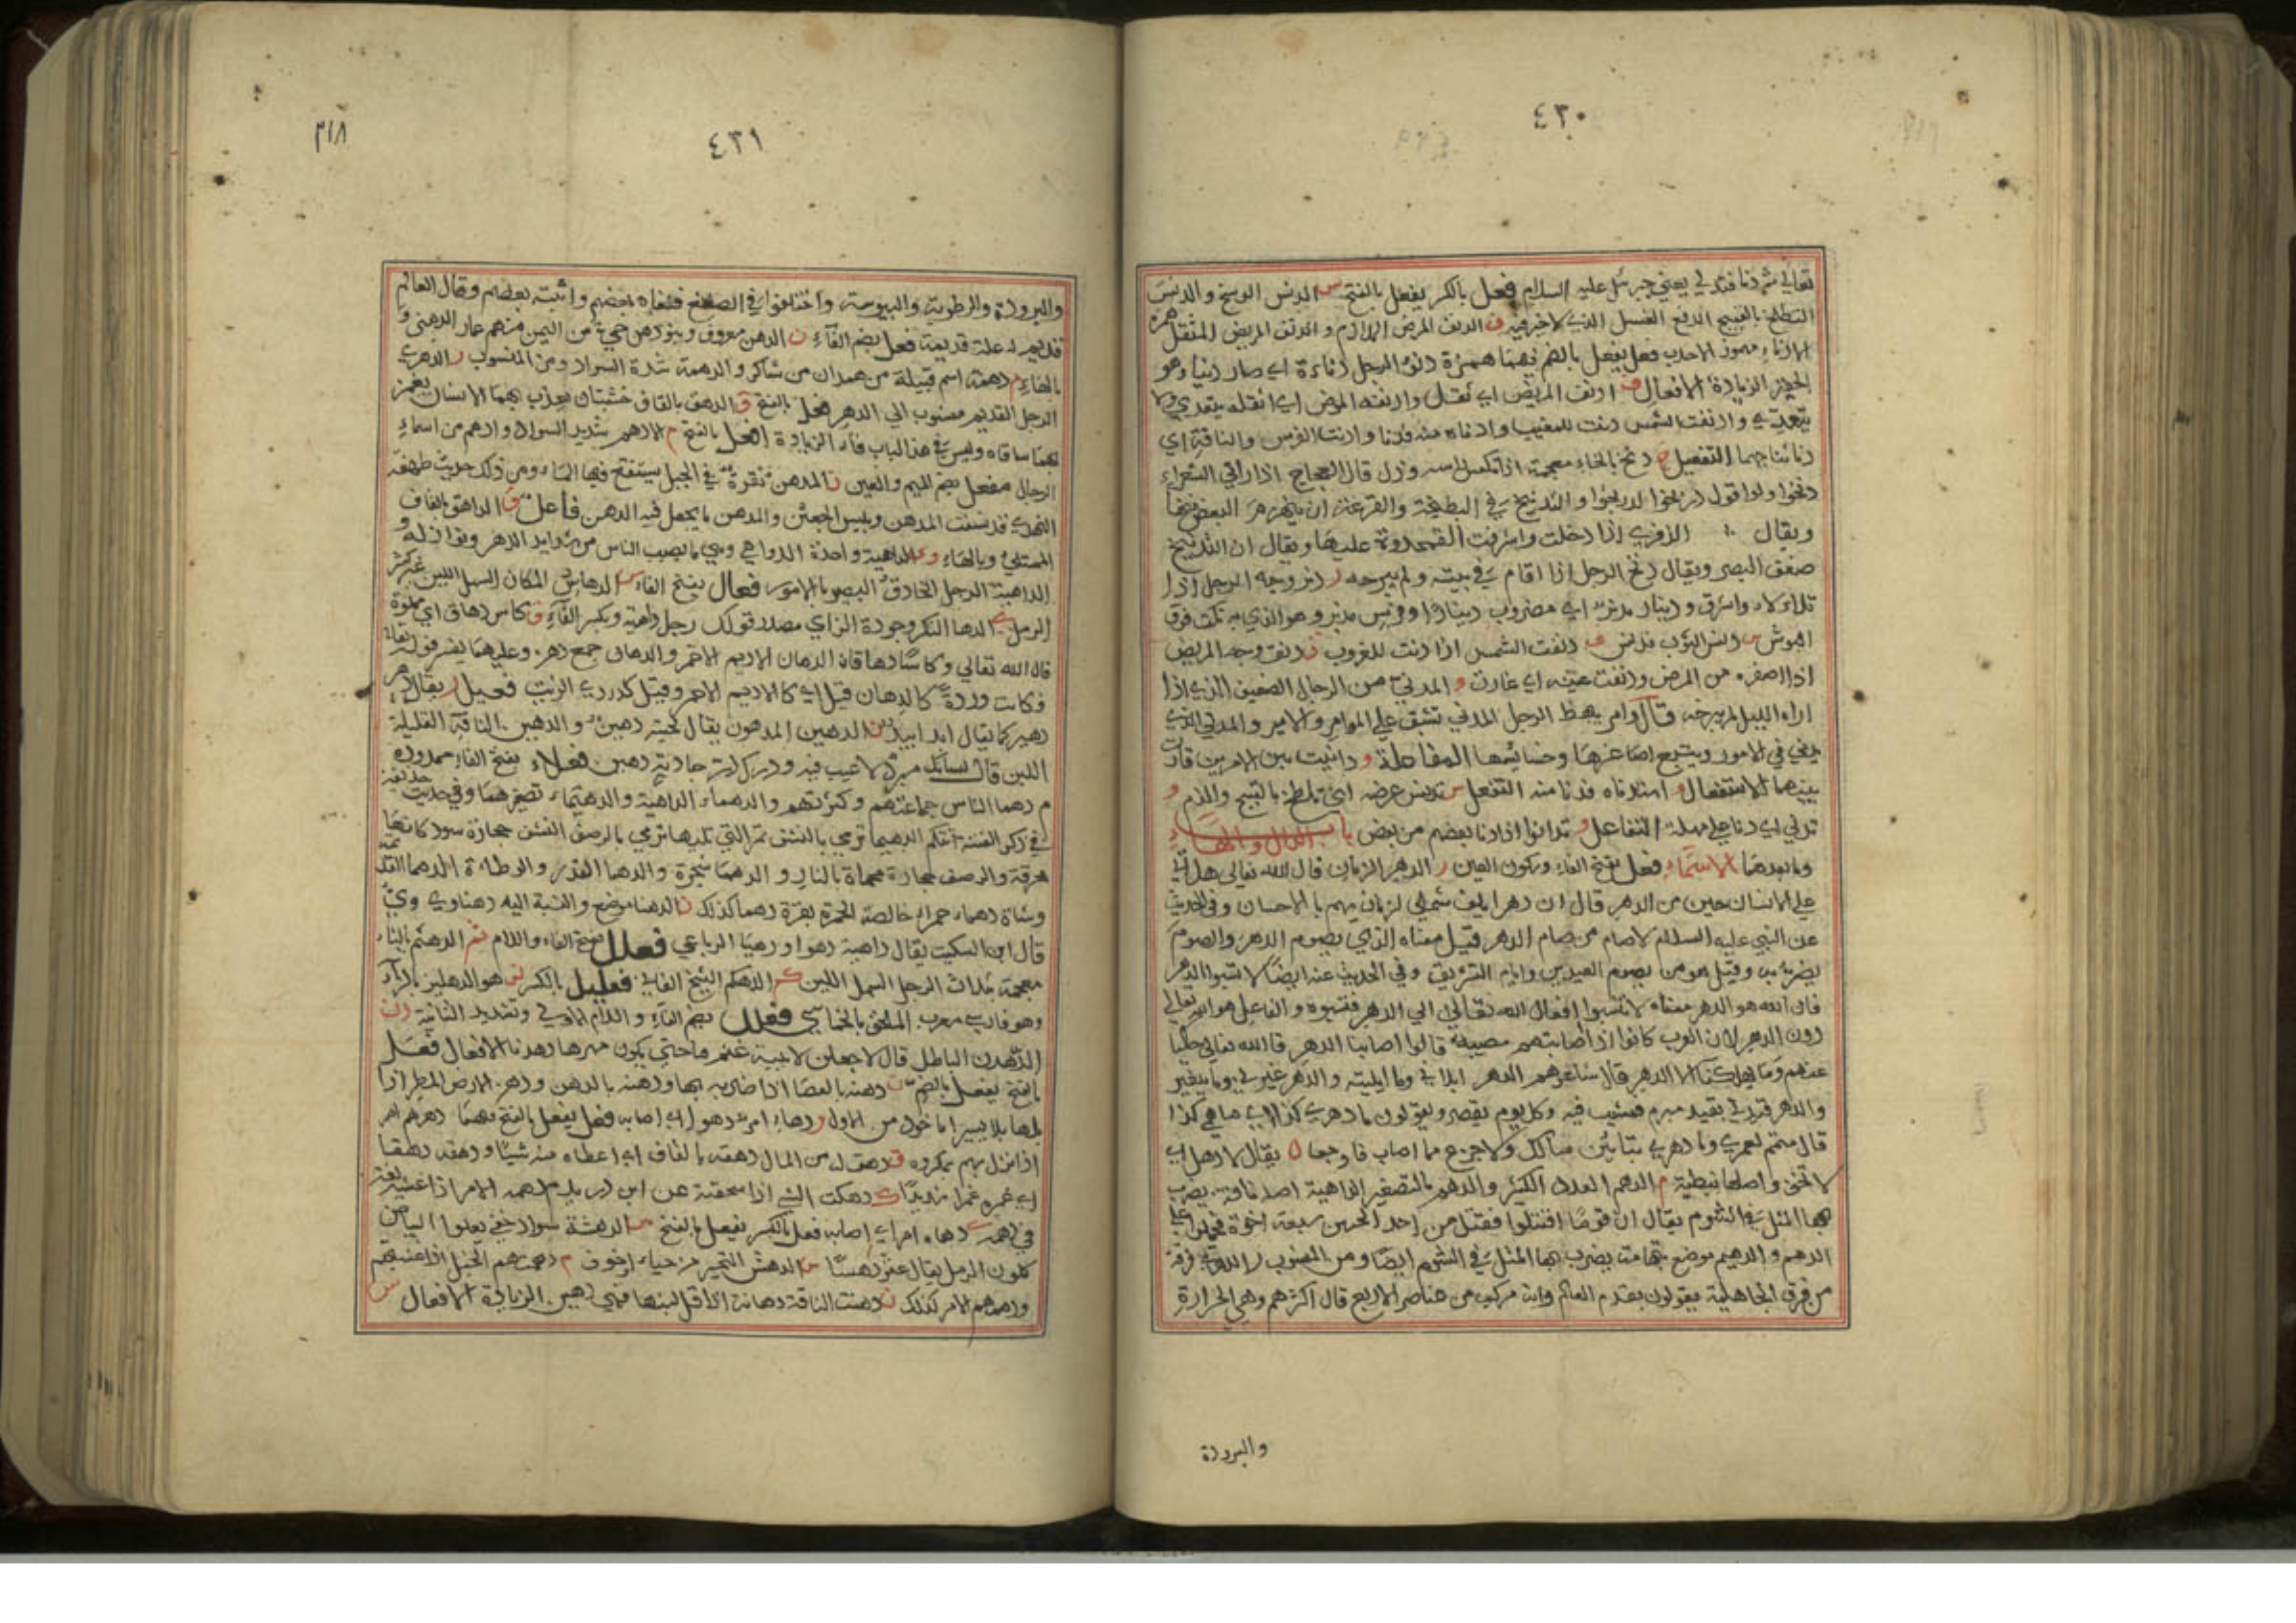 ٤٣٠
تعالى ثم دنا فتدلى يعني جبرئيل عليه السلام فعل بالكسر يفعل بالفتح س الدنس الوسخ والدنس
التلطخ بالقبيح ف الدنف المرض الملازم والدنف المريض المثقل همزة
الادناء مهموز الاحدب فعل يفعل بالضم فيهما همزة دنؤ الرجل دناءة اي صار دنيا وهو
الزيادة الافعال ف ادنف المريض اي ثقل وادنفه المرض اي اثقله يتعدى ولا
يتعدى وادنفت الشمس دنت للمغيب وادناه منه فدنا وادنت الفرس والناقة اي
دنا نتاجهما التفعيل خ دنخ بالخاء معجمة اذا نكس راسه وذل قال العجاج اذا راني الشعراء
دنخوا ولو اقول دربخوا لدربخوا والتدنيخ في البطيخة والقرعة ان ينهزم البعض منها
ويقال الذفرى اذا دخلت واشرفت القمحدوة عليها ويقال ان التدنيخ
ضعف البصر ويقال دنخ الرجل اذا اقام في بيته ولم يبرحه ر دنر وجه الرجل اذا
تلألأ واشرق ودينار مدنر اي مضروب دينارا وفرس مدنر وهو الذي به نكت فوق
البرش س دنس الثوب فدنس ف دنفت الشمس اذا دنت للغروب ق دنق وجه المريض
اذا اصفر من المرض ودنقت عينه اي غارت و المدني من الرجال الضعيف الذي اذا
اواه الليل لم يبرحه
يدني في الامور ويتتبع اصاغرها وخسائسها المفاعلة و دانيت بين الامرين قاربت
بينهما الاستفعال و استدناه فدنا منه التفعل س تدنس عرضه اي تلطخ بالقبيح والذم و
تدلى اي دنا على مهلة التفاعل و تدانوا اذا دنا بعضهم من بعض باب الدال والهاء
وما بعدهما الاسماء فعل بفتح الفاء وسكون العين ر الدهر الزمان قال الله تعالى هل اتى
على الانسان حين من الدهر قال ان دهرا يلف شملي لزمان يهم بالاحسان وفي الحديث
عن النبي عليه السلام لا صام من صام الدهر قيل معناه الذي يصوم الدهر والصوم
يضر به وقيل هو من يصوم العيدين وايام التشريق وفي الحديث عنه ايضا لا تسبوا الدهر
فان الله هو الدهر معناه لا تنسبوا افعال الله تعالى الى الدهر فتسبوه والفاعل هو الله تعالى
دون الدهر لان العرب كانوا اذا اصابتهم مصيبة قالوا اصابنا الدهر قال الله تعالى حكيا
عنهم وما يهلكنا الا الدهر قال شاعرهم الدهر ابلاني وما ابليته والدهر غيرني وما يتغير
والدهر قيدني بقيد مبرم فمشيت فيه وكل يوم يقصر ويقولون ما دهري كذا اي ما هي كذا
قال متمم لعمري وما دهري بتابين مالك ولا جزع مما اصاب فاوجعا ل يقال لا دهل اي
لا تخف واصلها نبطية م الدهم العدد الكثير والدهيم بالتصغير الداهية اصله ناقة يضرب
بها المثل في الشوم يقال ان قوما اقتتلوا فقتل من احد الحيين سبعة اخوة فحملوا على
الدهيم والدهيم موضع بتهامة يضرب بها المثل في الشوم ايضا ومن المنسوب ر الدهري فرقة
من فرق الجاهلية يقولون بقدم العالم وانه مركب من عناصر الاربع قال اكثرهم وهي الحرارة
والبرودة
٤٣١
٣١٨
والبرودة والرطوبة واليبوسة واختلفوا في الصانع فنفاه بعضهم واثبته بعضهم وقال العالم
قديم له علة قديمة فعل بضم الفاء ن الدهن معروف وبنو دهن حي من اليمن منهم عمار الدهني و
بالهاء م دهمة اسم قبيلة من همدان من شاكر والدهمة شدة السواد ومن المنسوب ر الدهري
الرجل القديم منسوب الى الدهر فعل بالفتح ق الدهق بالقاف خشبتان يعذب بهما الانسان يغمز
بهما ساقاه وليس في هذا الباب فاء الزيادة افعل بالفتح م الادهم شديد السواد وادهم من اسماء
الرجال مفعل بضم الميم والعين ن المدهن نقرة في الجبل يستنقع فيها الماء ومن ذلك حديث طهفة
النهدي قد نشف المدهن ويبس الجعثن والمدهن ما يجعل فيه الدهن فاعل ق الداهق بالقاف
الممتلئ وبالهاء و الداهية واحدة الدواهي وهي ما يصيب الناس من شدايد الدهر ونوازله و
الداهية الرجل الحاذق البصير بالامور فعال بفتح الفاء س الدهاس المكان السهل اللين غير كثير
الرمل ي الدها النكر وجودة الراي مصدر قولك رجل داهية وبكسر الفاء ق كاس دهاق اي مملوة
قال الله تعالى وكاسا دهاقا ن الدهان الاديم الاحمر والدهان جمع دهن وعليهما يفسر قوله تعالى
فكانت وردة كالدهان قيل اي كالاديم الاحمر وقيل كدردي الزيت فعيل ر يقال دهر
دهير كما يقال ابد ابيد ن الدهين المدهون يقال لحية دهين والدهين الناقة القليلة
اللبن قال لسانك مبرد لا عيب فيه ودرك در جاذبة دهين فعلاء بفتح الفاء ممدودة
م دهما الناس جماعتهم وكثرتهم والدهماء الداهية والدهيماء تصغيرهما وفي حديث حذيفة
في ذكر الفتنة اتتكم الدهيما ترمي بالنشف ثم التي تليها ترمي بالرضف النشف حجارة سود كانها
محرقة والرضف حجارة محماة بالنار والدهما شجرة والدهما القدر والوطاءة الدهما القديمة
وشاة دهماء حمراء خالصة الحمرة بقرة دهما كذلك ن الدهنا موضع والنسبة اليه دهناوي وي
قال ابن السكيت يقال داهية دهوا ودهيا الرباعي فعلل بفتح الفاء واللام ثم الدهثم بالثاء
معجمة ثلاث الرجل السهل اللين كم الدهكم الشيخ الفاني فعليل بالكسر لز هو الدهليز بالزاء
وهو فارسي معرب الملحق بالخماسي فعلل بضم الفاء واللام الاولى وتشديد الثانية دن
الدهدن الباطل قال لاجعلن لابنة غنم فنا حتى يكون مهرها دهدنا الافعال فعل
بالفتح يفعل بالضم ن دهنه بالعصا اذا ضربه بها ودهنه بالدهن ودهن الارض المطر اذا
بلها بللا يسيرا ماخوذ من الاول و دهاه امر دهو اي اصابه فعل يفعل بالفتح فيهما دهرهم امر
اذا نزل بهم مكروه ق دهق له من المال دهقة بالقاف اي اعطاه منه شيئا ودهقه دهقا
اي غمزه غمزا شديدا ك دهكت الشي اذا سحقته عن ابن دريد م دهمه الامر اذا غشيه لغة
في دهمه ي دهاه امر اي اصابه فعل بالكسر يفعل بالفتح س الدهسة سواد خفي يعلوا البياض
كلون الرمل يقال عنز دهسا ش الدهش التحير من حياء او خوف م دهمتهم الخيل اذا غشيتهم
ودهمهم الامر كذلك ن دهنت الناقة دهانة اذا قل لبنها فهي دهين الزيادة الافعال س